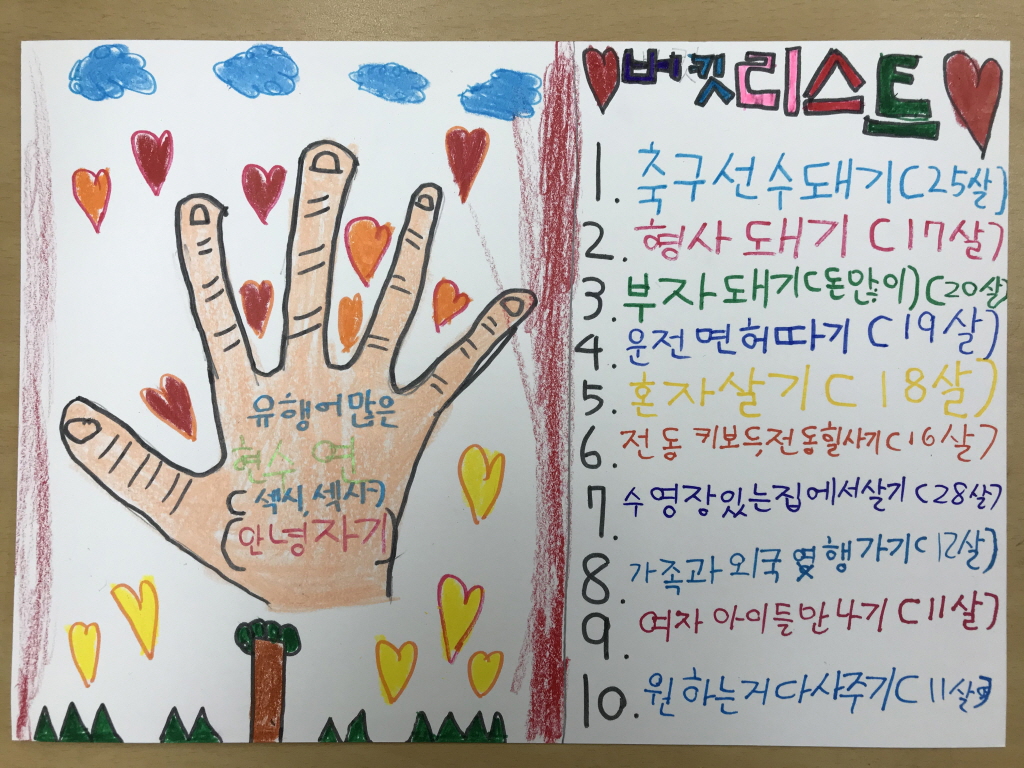 유행어많은
현수연
(섹시,섹시)
(안녕자기
버킷리스트
1. 축구선수돼기(25살)
2. 형사돼기(17살)
3. 부자돼기(돈많이)(20살)
4. 운전면허따기(19살)
5. 혼자살기(18살)
6. 전동키보듯전동휠사기(16살)
7. 수영장있는집에서살기(28살)
8. 가족과외국 행가기(12살)
9. 여자아이들만 4기(11살)
10. 원하는거다사주기(11살